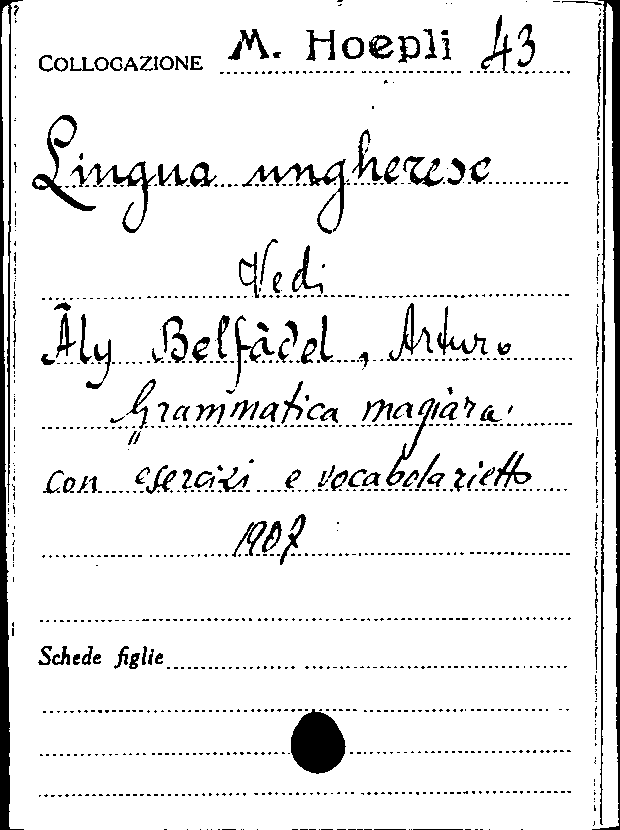 COLLOCAZIONE M. Hoepli 43
Lingua ungherese
Vedi
Āly Belfàdel, Arturo
Grammatica magiàra
con esercizi e vocabolarietto
1907
Schede figlie